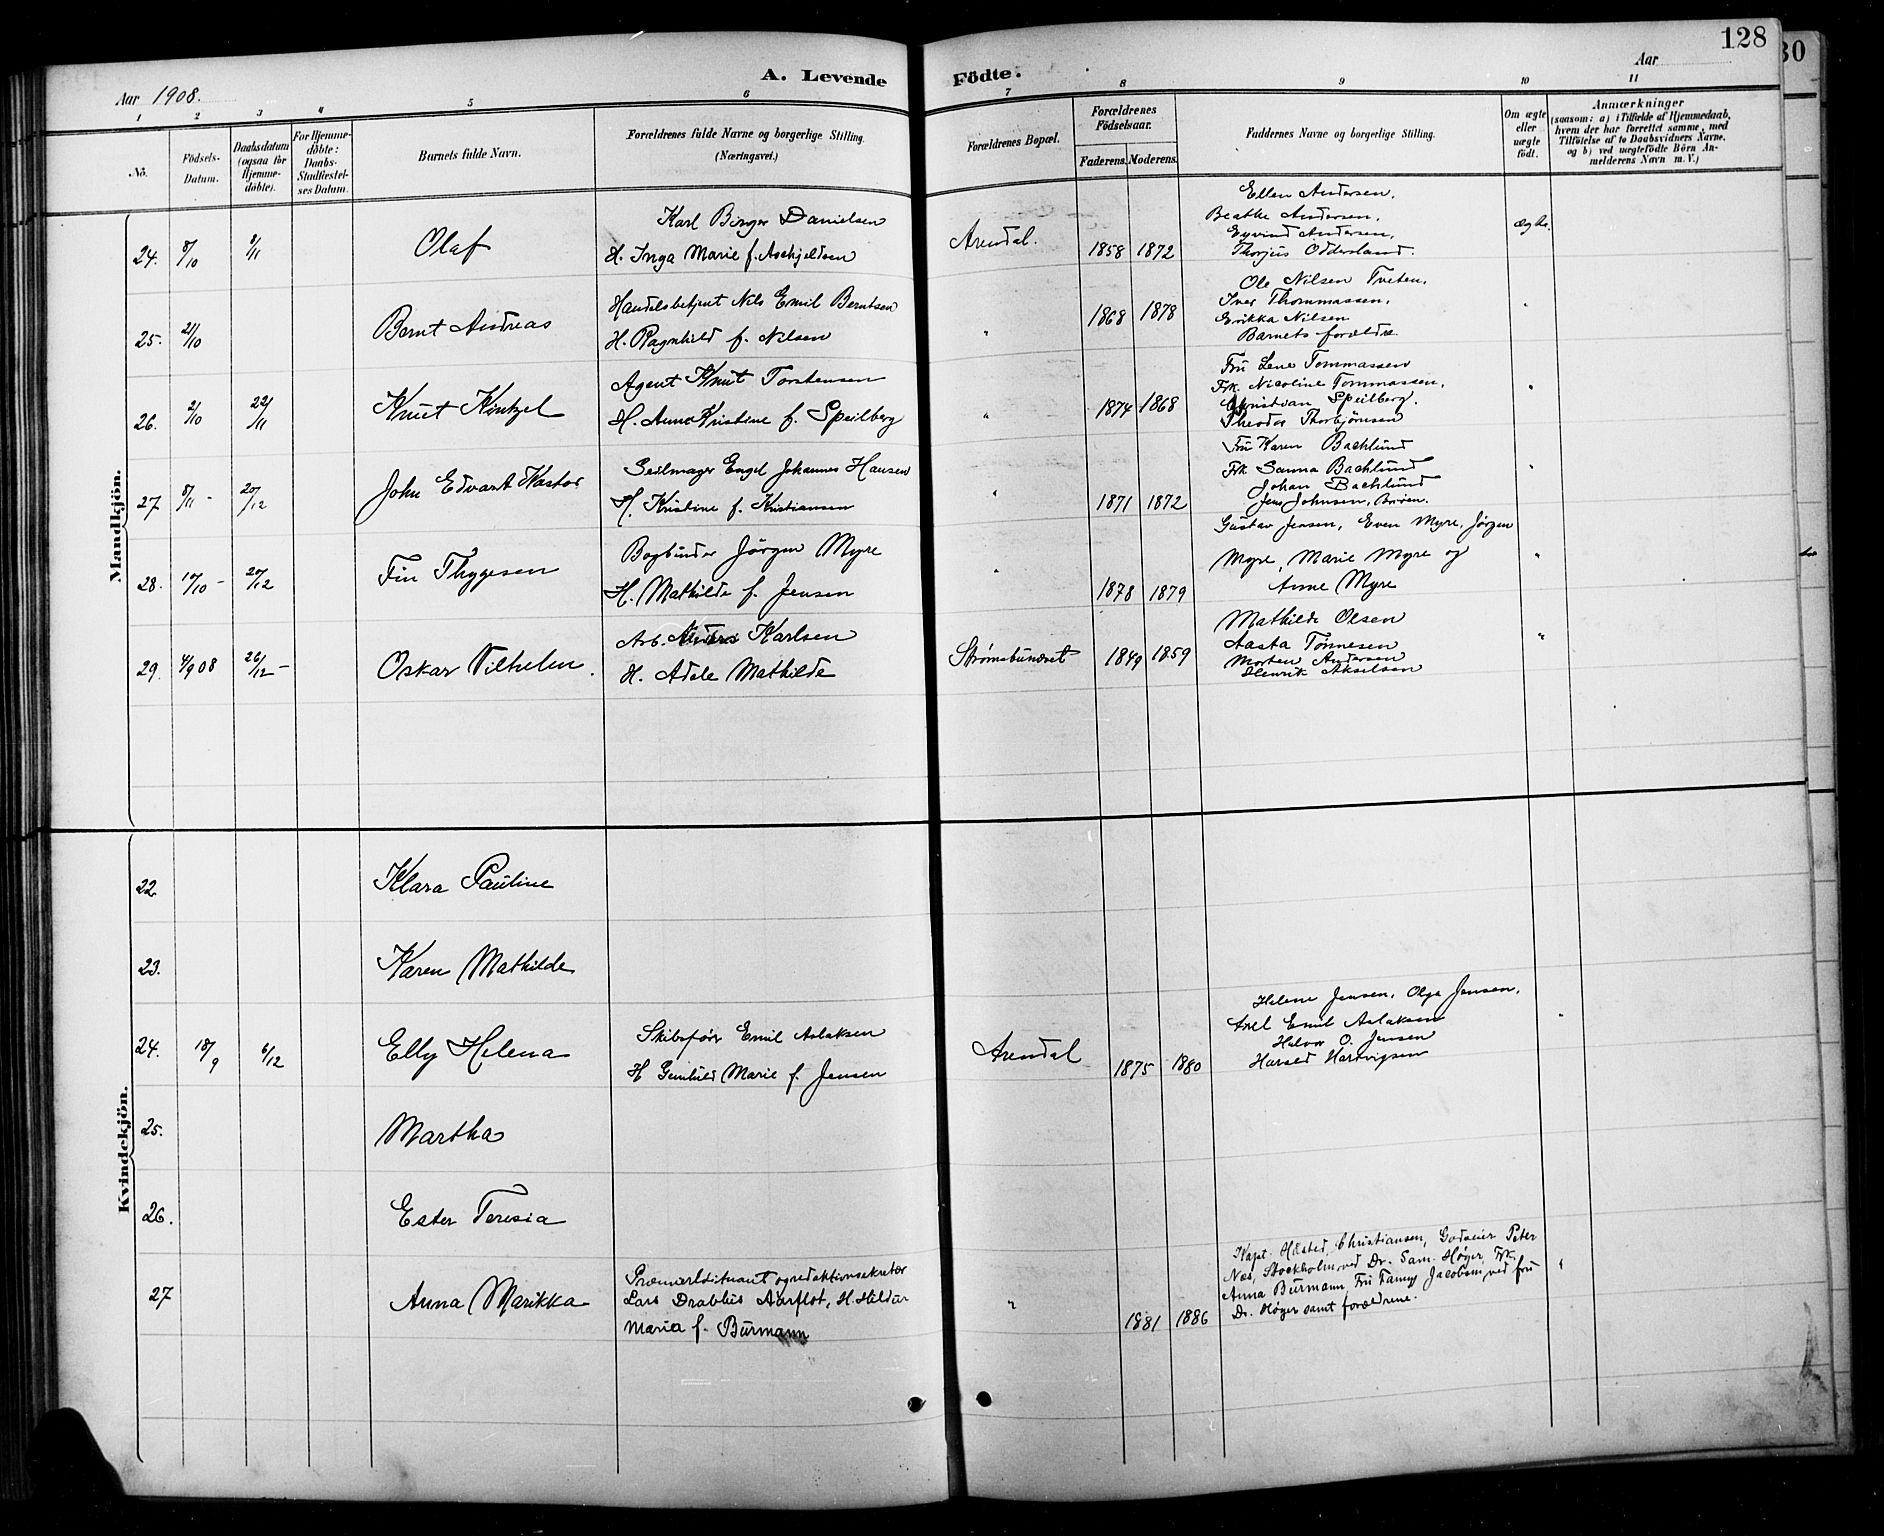 128
30
A. Levende Födte.
Aar 1908.
Aar
1 2 3 4 5 6 7 8 9 10 11
No.
Födsels-Datum.
Daabsdatum (ogsaa for Hjemme-døbte).
For Hjemme-døbte: Daabs-Stadfæstel-ses Datum.
Barnets fulde Navn.
Forældrenes fulde Navne og borgerlige Stilling. (Næringsvei.)
Forældrenes Bopæl.
Forældrenes Födselsaar.
Faderens. Moderens.
Faddernes Navne og borgerlige Stilling.
Om ægte eller uægte födt.
Anmærkninger
(saasom: a) i Tilfælde af Hjemmedaab,
hvem der har forrettet samme, med
Tilföielse af to Daabsvidners Navne,
og b) ved uægtefödte Börn An-
melderens Navn m. V.)
Mandkjön.
24. 8/10 8/11 Olaf
Karl Birger Danielsen
H. Inga Marie f. Aschjeldsen
Arendal. 1858 1872
Ellen Andersen.
Beathe Andersen,
Eyvind Andersen,
Thorjus Oddersland.
Ægte.
25. 21/10 Bernt Andreas
Handelsbetjent Nils Emil Berntsen
H. Ragnhild f. Nilsen
" 1868 1878
Ole Nilsen Tveten,
Iver Thommassen,
Erikka Nilsen
Barnets forældre
"
26. 2/10 22/11 Knut Kintzel
Agent Knut Torstensen
H. Anna Kristine f. Speilberg
" 1874 1868
Fru Lene Tommassen
Frk. Nicoline Tommassen,
Christian Speilberg.
Theodor Thorbjørnsen
"
27. 8/11 - 20/12 John Edvart Kastor
Seilmager Engel Johannes Hansen
H. Kristine f. Kristiansen
" 1871 1872
Fru Karen Bachlund
Frk Sanna Bachlund
Johan Bachlund
Jens Johnsen, Broien.
"
28. 10/10 - 20/12 Fin Thygesen
Bogbinder Jörgen Myre
H. Mathilde f. Jensen
" 1878 1879
Gustav Jensen, Even Myre, Jörgen
Myre, Marie Myre og
Anne Myre
"
29. 4/9 08 26/12 - Oskar Vilhelm.
Arb. Anders Karlsen
H. Adele Mathilde
Strømsbunæset 1849 1859
Mathilde Olsen
Aasta Tønnesen
Morten Andersen
Henrik Akselsen
"
Kvindekjön.
22 Klara Pauline
23. Karen Mathilde
24. 18/9 6/12 Elly Helena
Skibsfør Emil Aslaksen
H Gunhild Marie f. Jensen
Arendal 1875 1880
Helene Jensen, Olga Jensen,
Axel Emil Aslaksen
Halvor O. Jensen
Harald Hartvigsen
"
25. Martha
26. Ester Teresia
27 Anna Marikka
Premierløitnant og redaktionsekretær
Lars Drabløs Aarflot, H. Hildur
Maria f. Burmann
" 1881 1886
Kapt. Husted, Christiansen, Godseier Peter
Næs, Stockholm, ved Dr. Sam. Høyer, Frk
Anna Burmann, Fru Fanny Jacobsen, ved fru
Dr. Høyer samt forældrene.
"